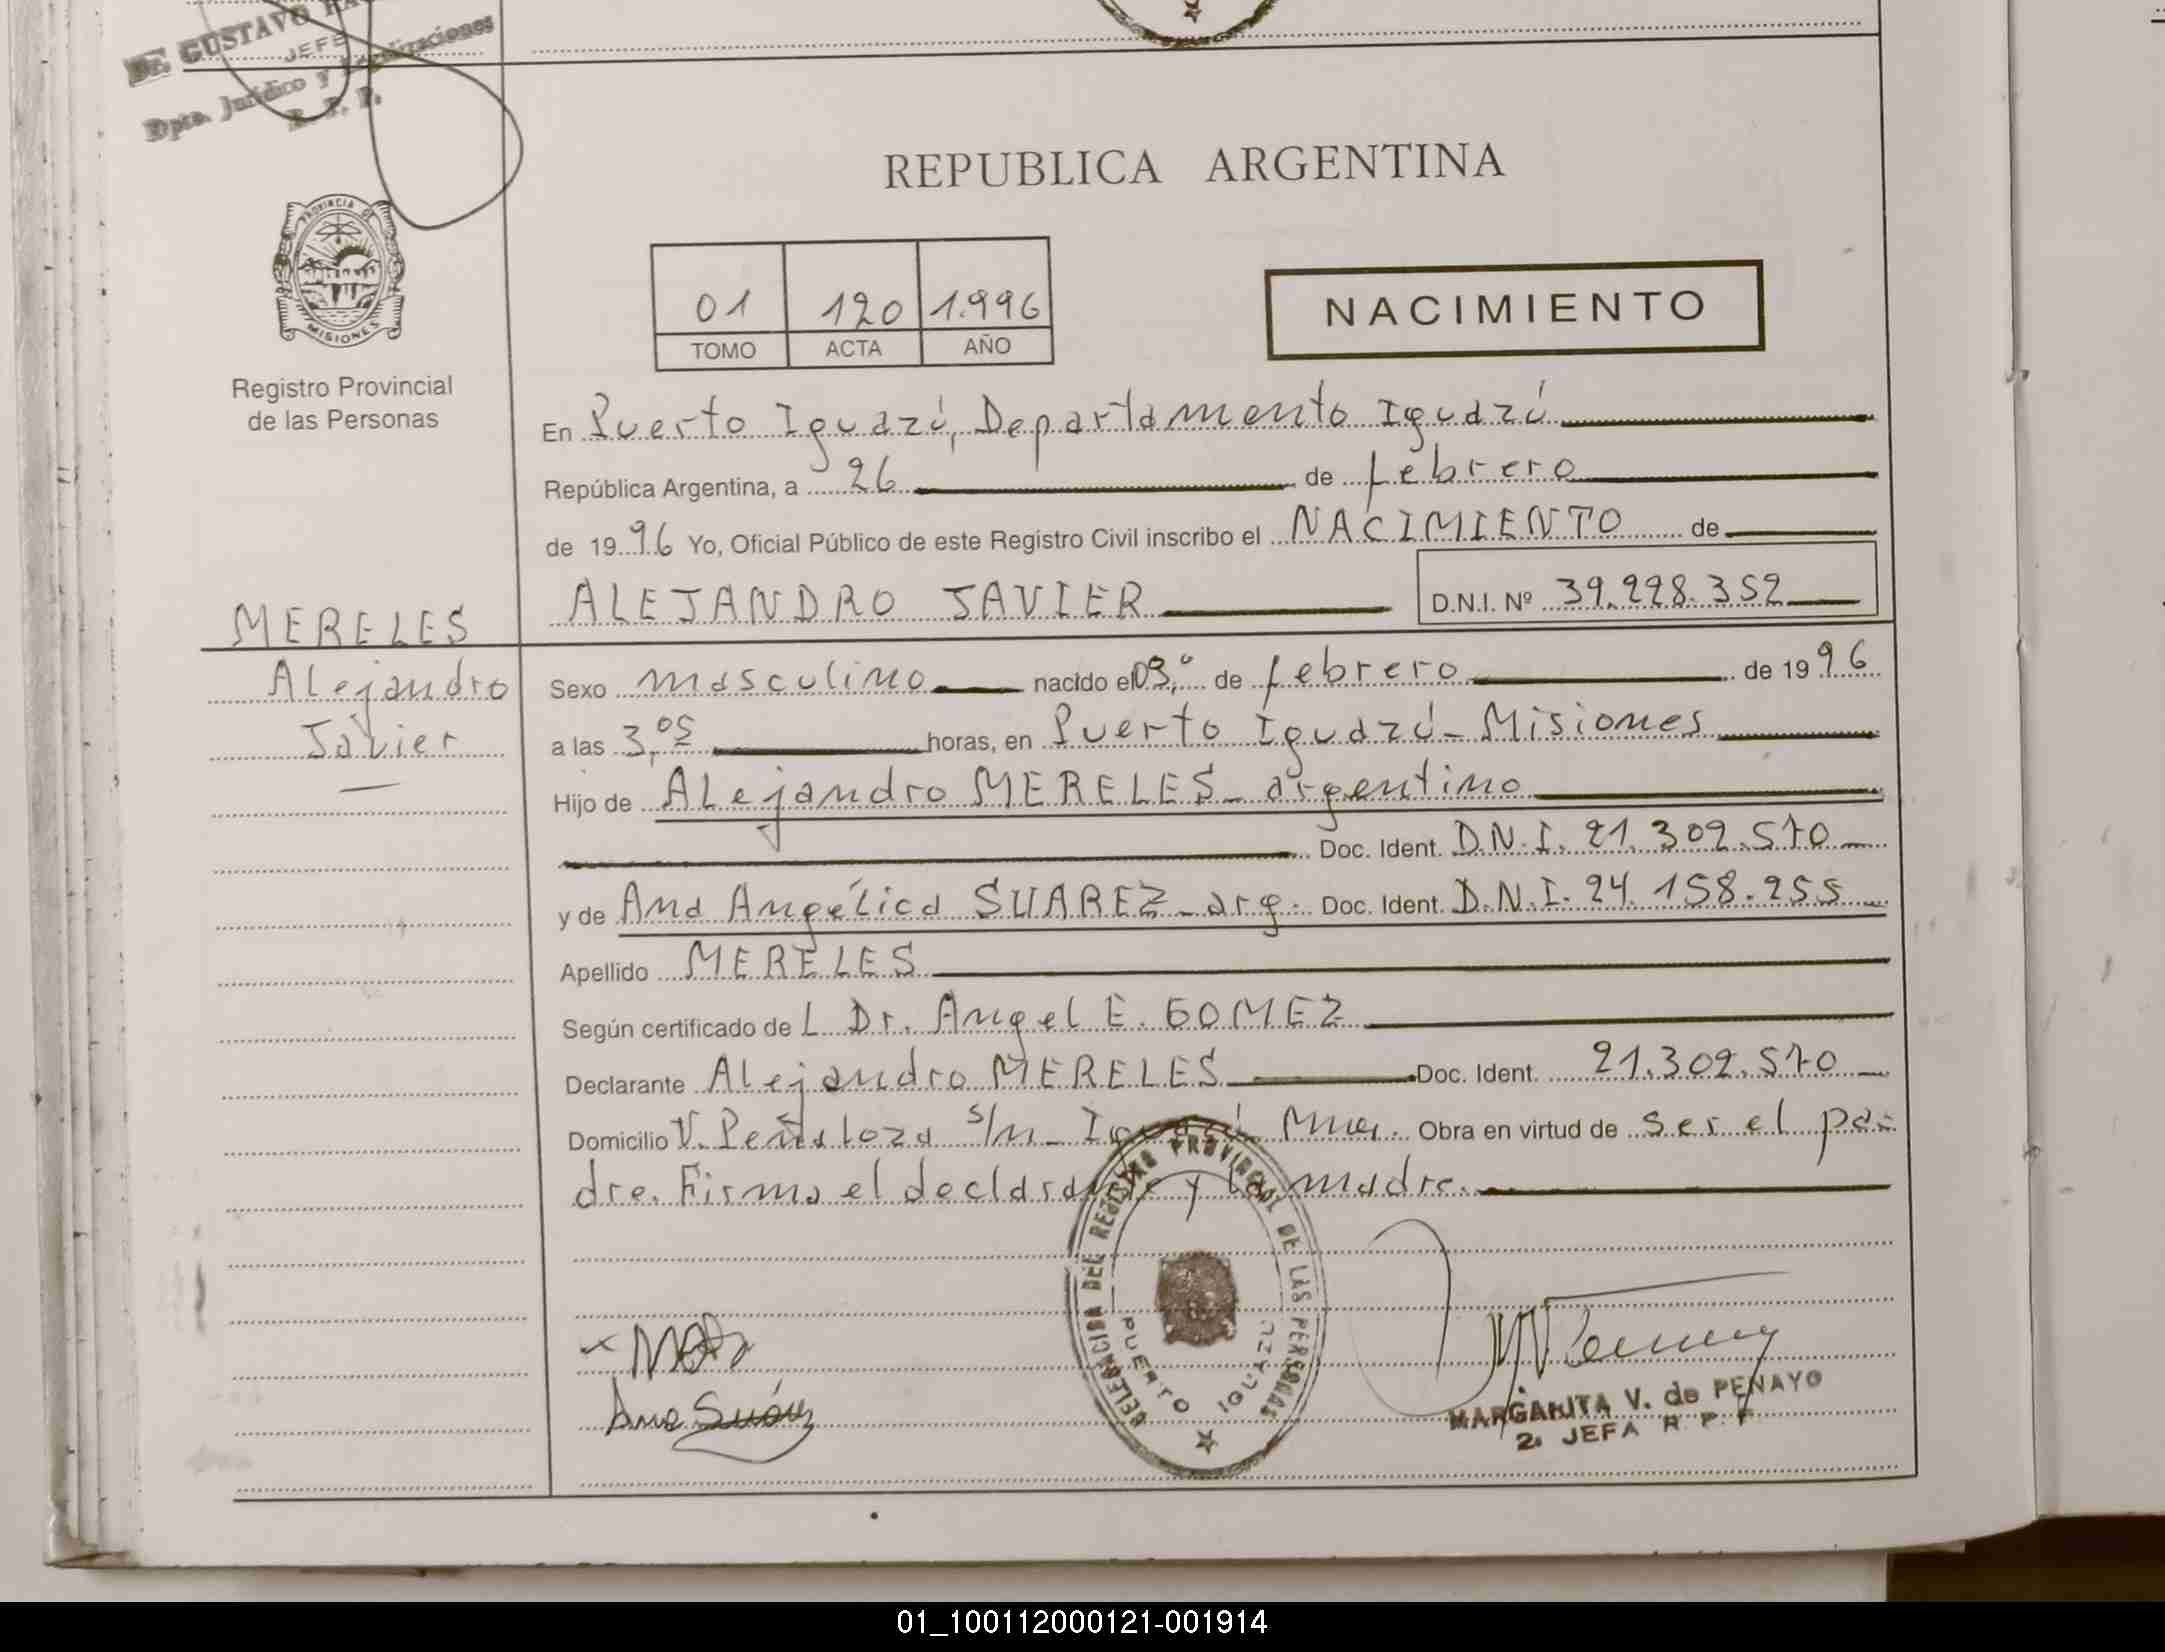 Dr. GUSTAVO
JEFE
Dpto. Jurídico y Legalizaciones
R. P. P.
REPUBLICA ARGENTINA
PROVINCIA DE
MISIONES
01 120 1.996
TOMO ACTA AÑO
NACIMIENTO
Registro Provincial
de las Personas
En Puerto Iguazú, Departamento Iguazú
República Argentina, a 26 de febrero
de 1996 Yo, Oficial Público de este Registro Civil inscribo el NACIMIENTO de
ALEJANDRO JAVIER D.N.I. Nº 39.228.352
MERELES
Alejandro
Javier
Sexo masculino nacido el 03º de febrero de 1996
a las 3,05 horas, en Puerto Iguazú - Misiones
Hijo de Alejandro MERELES - argentino
Doc. Ident. D.N.I. 21.302.570
y de Ana Angélica SUAREZ - arg. Doc. Ident. D.N.I. 24.158.255
Apellido MERELES
Según certificado de L Dr. Angel E. GOMEZ
Declarante Alejandro MERELES Doc. Ident. 21.302.570
Domicilio V. Peñaloza s/n - Iguazú Mnes. Obra en virtud de ser el pa-
dre. Firma el declarante y la madre.
DELEGACION DEL REGISTRO PROVINCIAL DE LAS PERSONAS
PUERTO IGUAZU
Ana Suárez
MARGARITA V. de PENAYO
2. JEFA R. P. P.
01_100112000121-001914